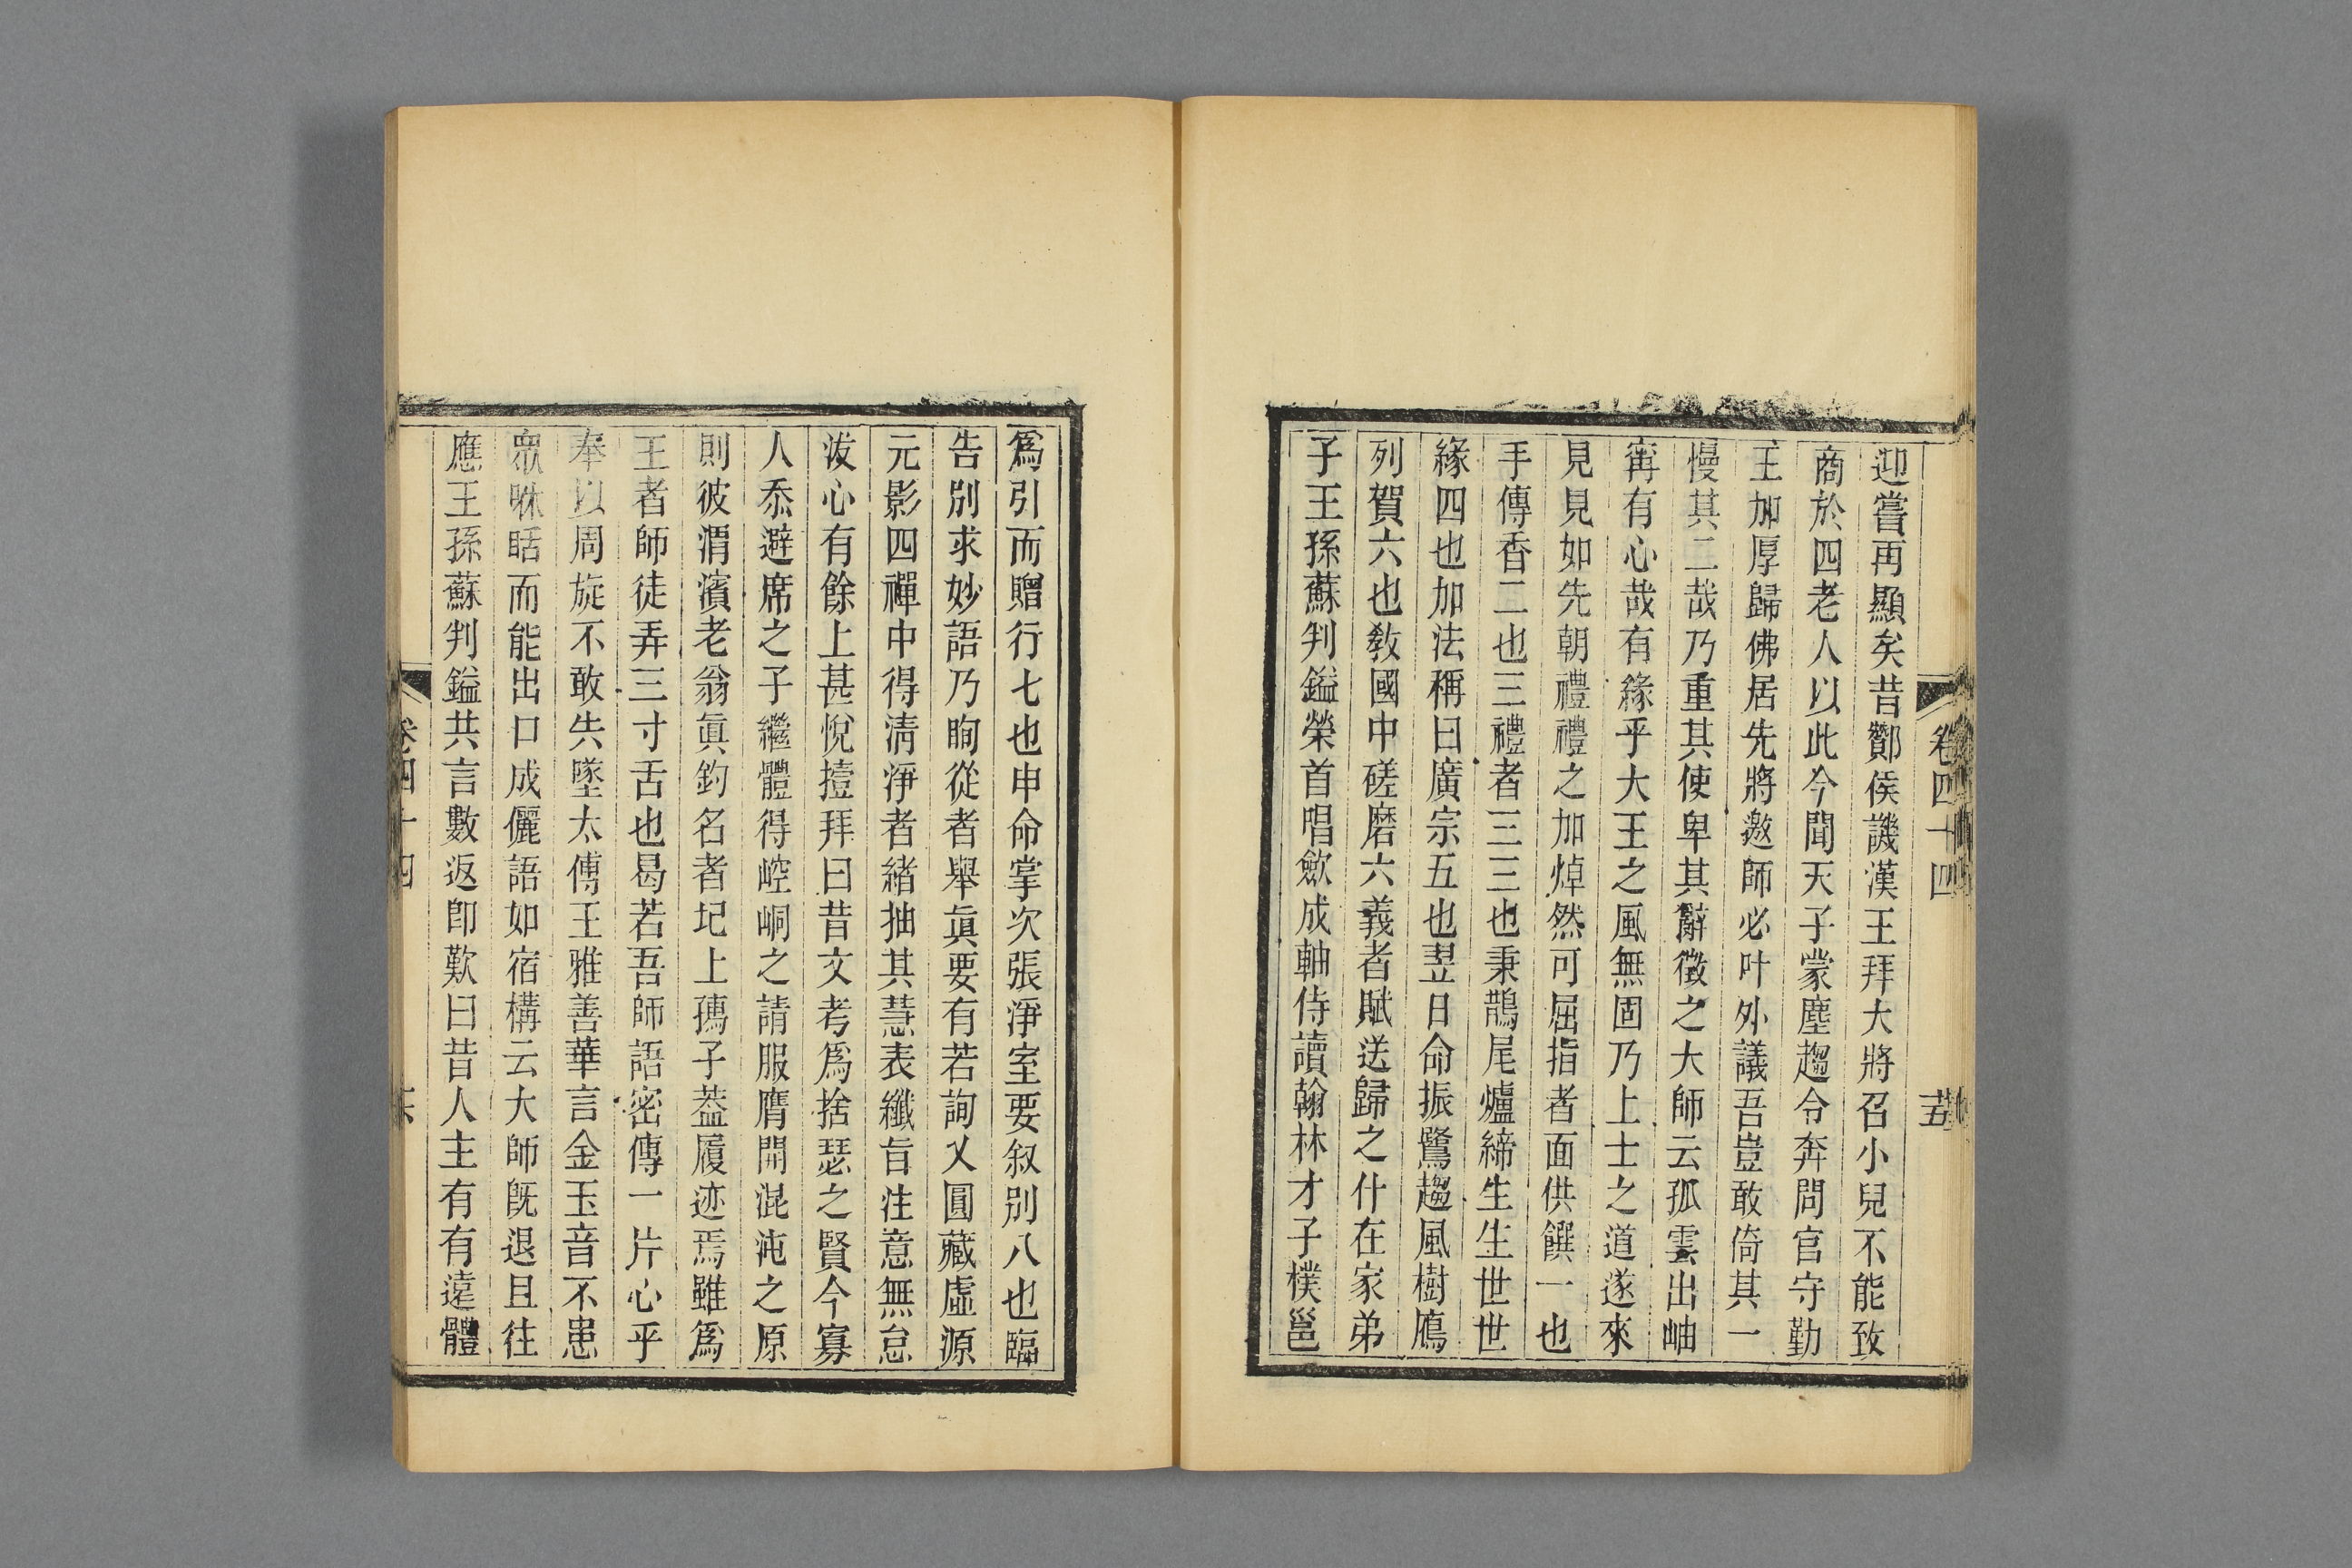 卷四十四
十五
迎嘗再顯矣昔酇侯譏漢王拜大將召小兒不能致
商於四老人以此今聞天子蒙塵趨令奔問官守勤
王加厚歸佛居先將邀師必叶外議吾豈敢倚其一
慢其二哉乃重其使卑其辭徵之大師云孤雲出岫
寗有心哉有緣乎大王之風無固乃上士之道遂來
見見如先朝禮禮之加焯然可屈指者面供饌一也
手傳香二也三禮者三三也秉鵲尾爐締生生世世
緣四也加法稱曰廣宗五也翌日命振鷺趨風樹鴈
列賀六也敎國中磋磨六義者賦送歸之什在家弟
子王孫蘇判鎰榮首唱歛成軸侍讀翰林才子樸邕
爲引而贈行七也申命掌次張淨室要叙別八也臨
告別求妙語乃眴從者舉眞要有若詢乂圓藏虛源
元影四禪中得淸淨者緖抽其慧表纖旨注意無怠
沷心有餘上甚悅撎拜曰昔文考爲捨瑟之賢今寡
人忝避席之子繼體得崆峒之請服膺開混沌之原
則彼渭濱老翁眞釣名者圯上孺子葢履迹焉雖爲
王者師徒弄三寸舌也曷若吾師語密傳一片心乎
奉以周旋不敢失墜太傅王雅善華言金玉音不患
眾咻聒而能出口成儷語如宿構云大師旣退且往
應王孫蘇判鎰共言數返卽歎曰昔人主有有遠體
卷四十四